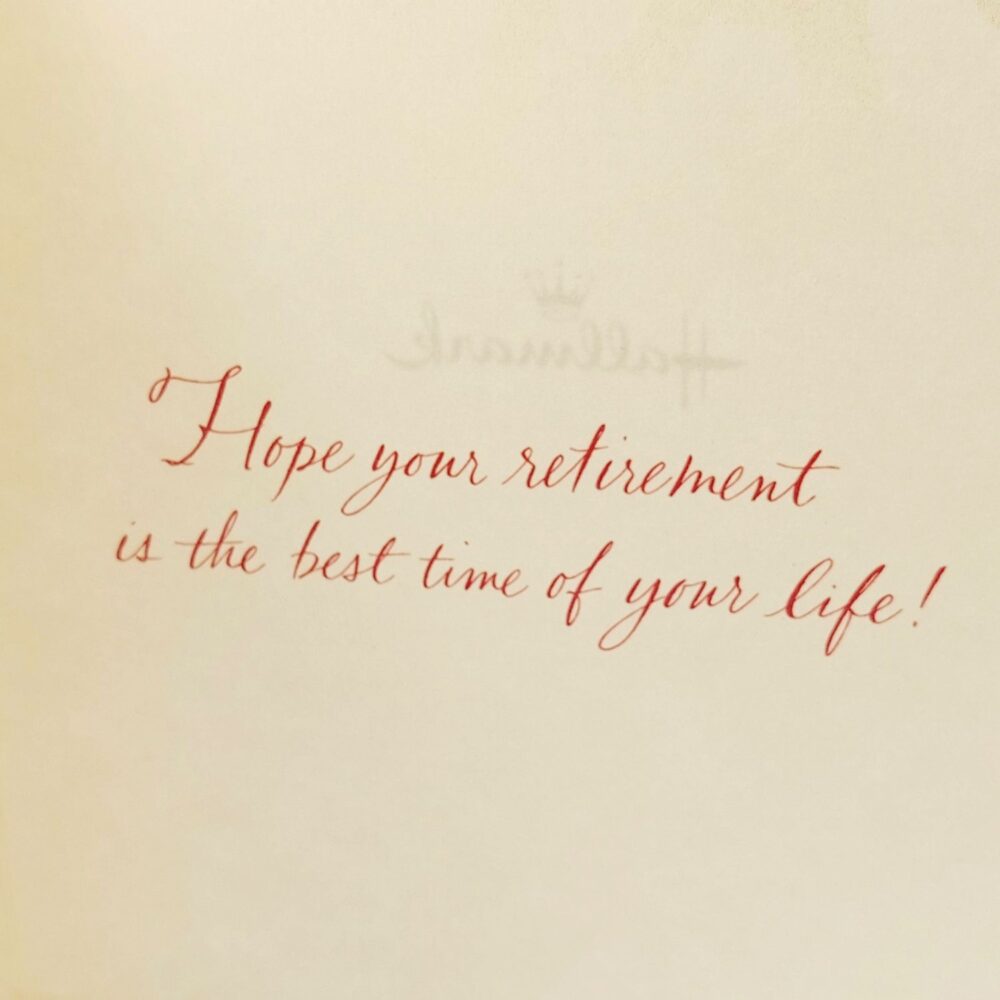 Hallmark
Hope your retirement
is the best time of your life!